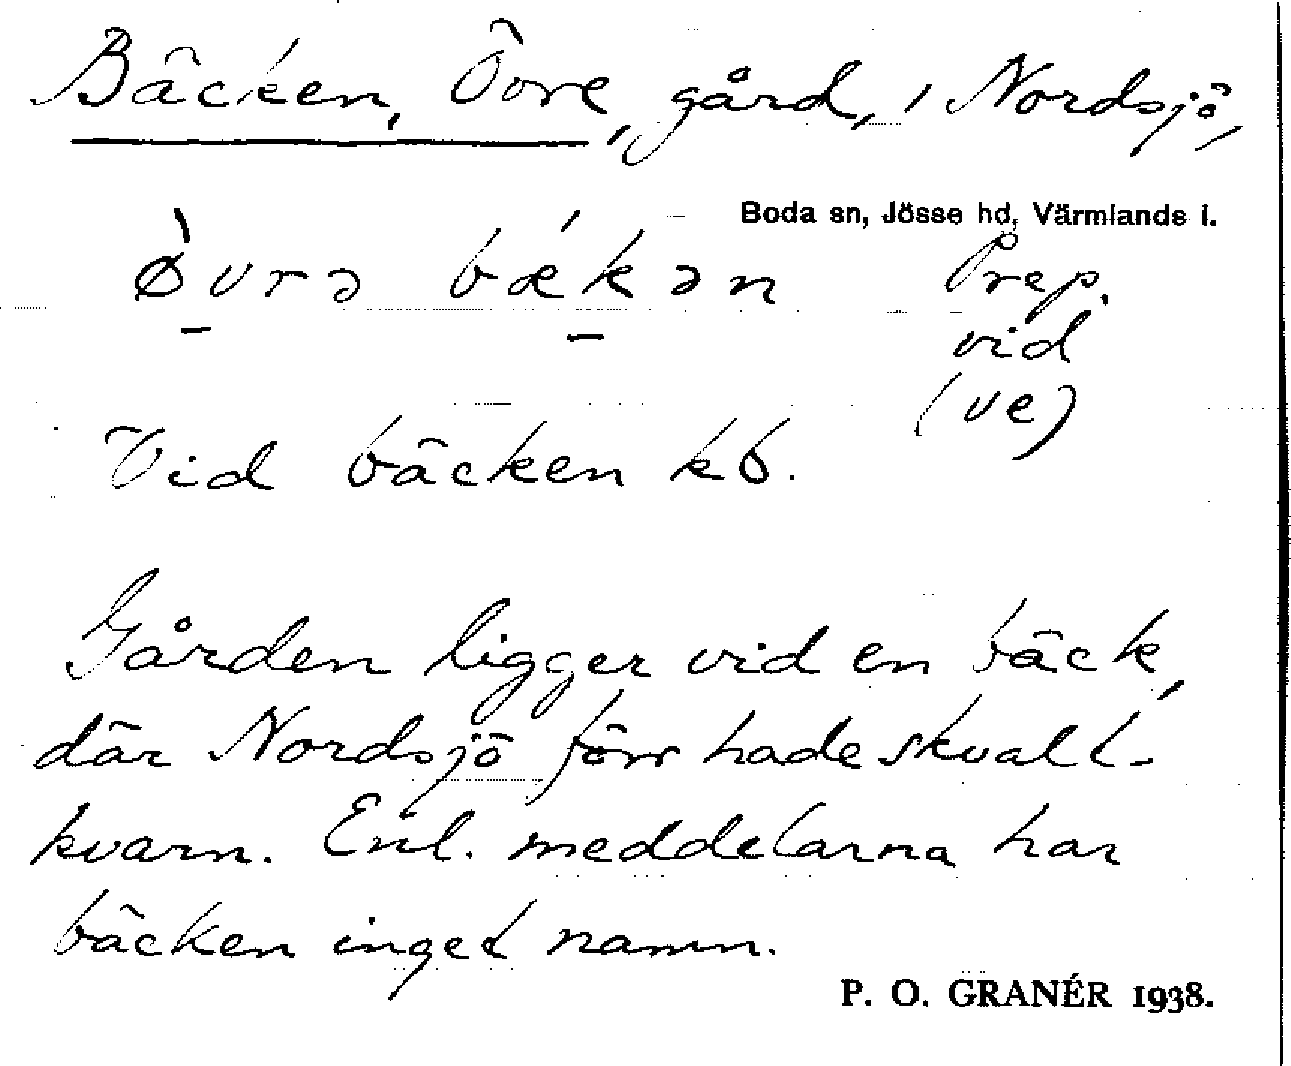 Bäcken, Övre, gård, i Nordsjö,
Boda sn, Jösse hd, Värmlands l.
ø̀vrə bǽkən Prep.
vid
(ve)
Vid bäcken kb.
Gården ligger vid en bäck,
där Nordsjö förr hade skvalt-
kvarn. Enl. meddelarna har
bäcken inget namn.
P. O. GRANÉR 1938.